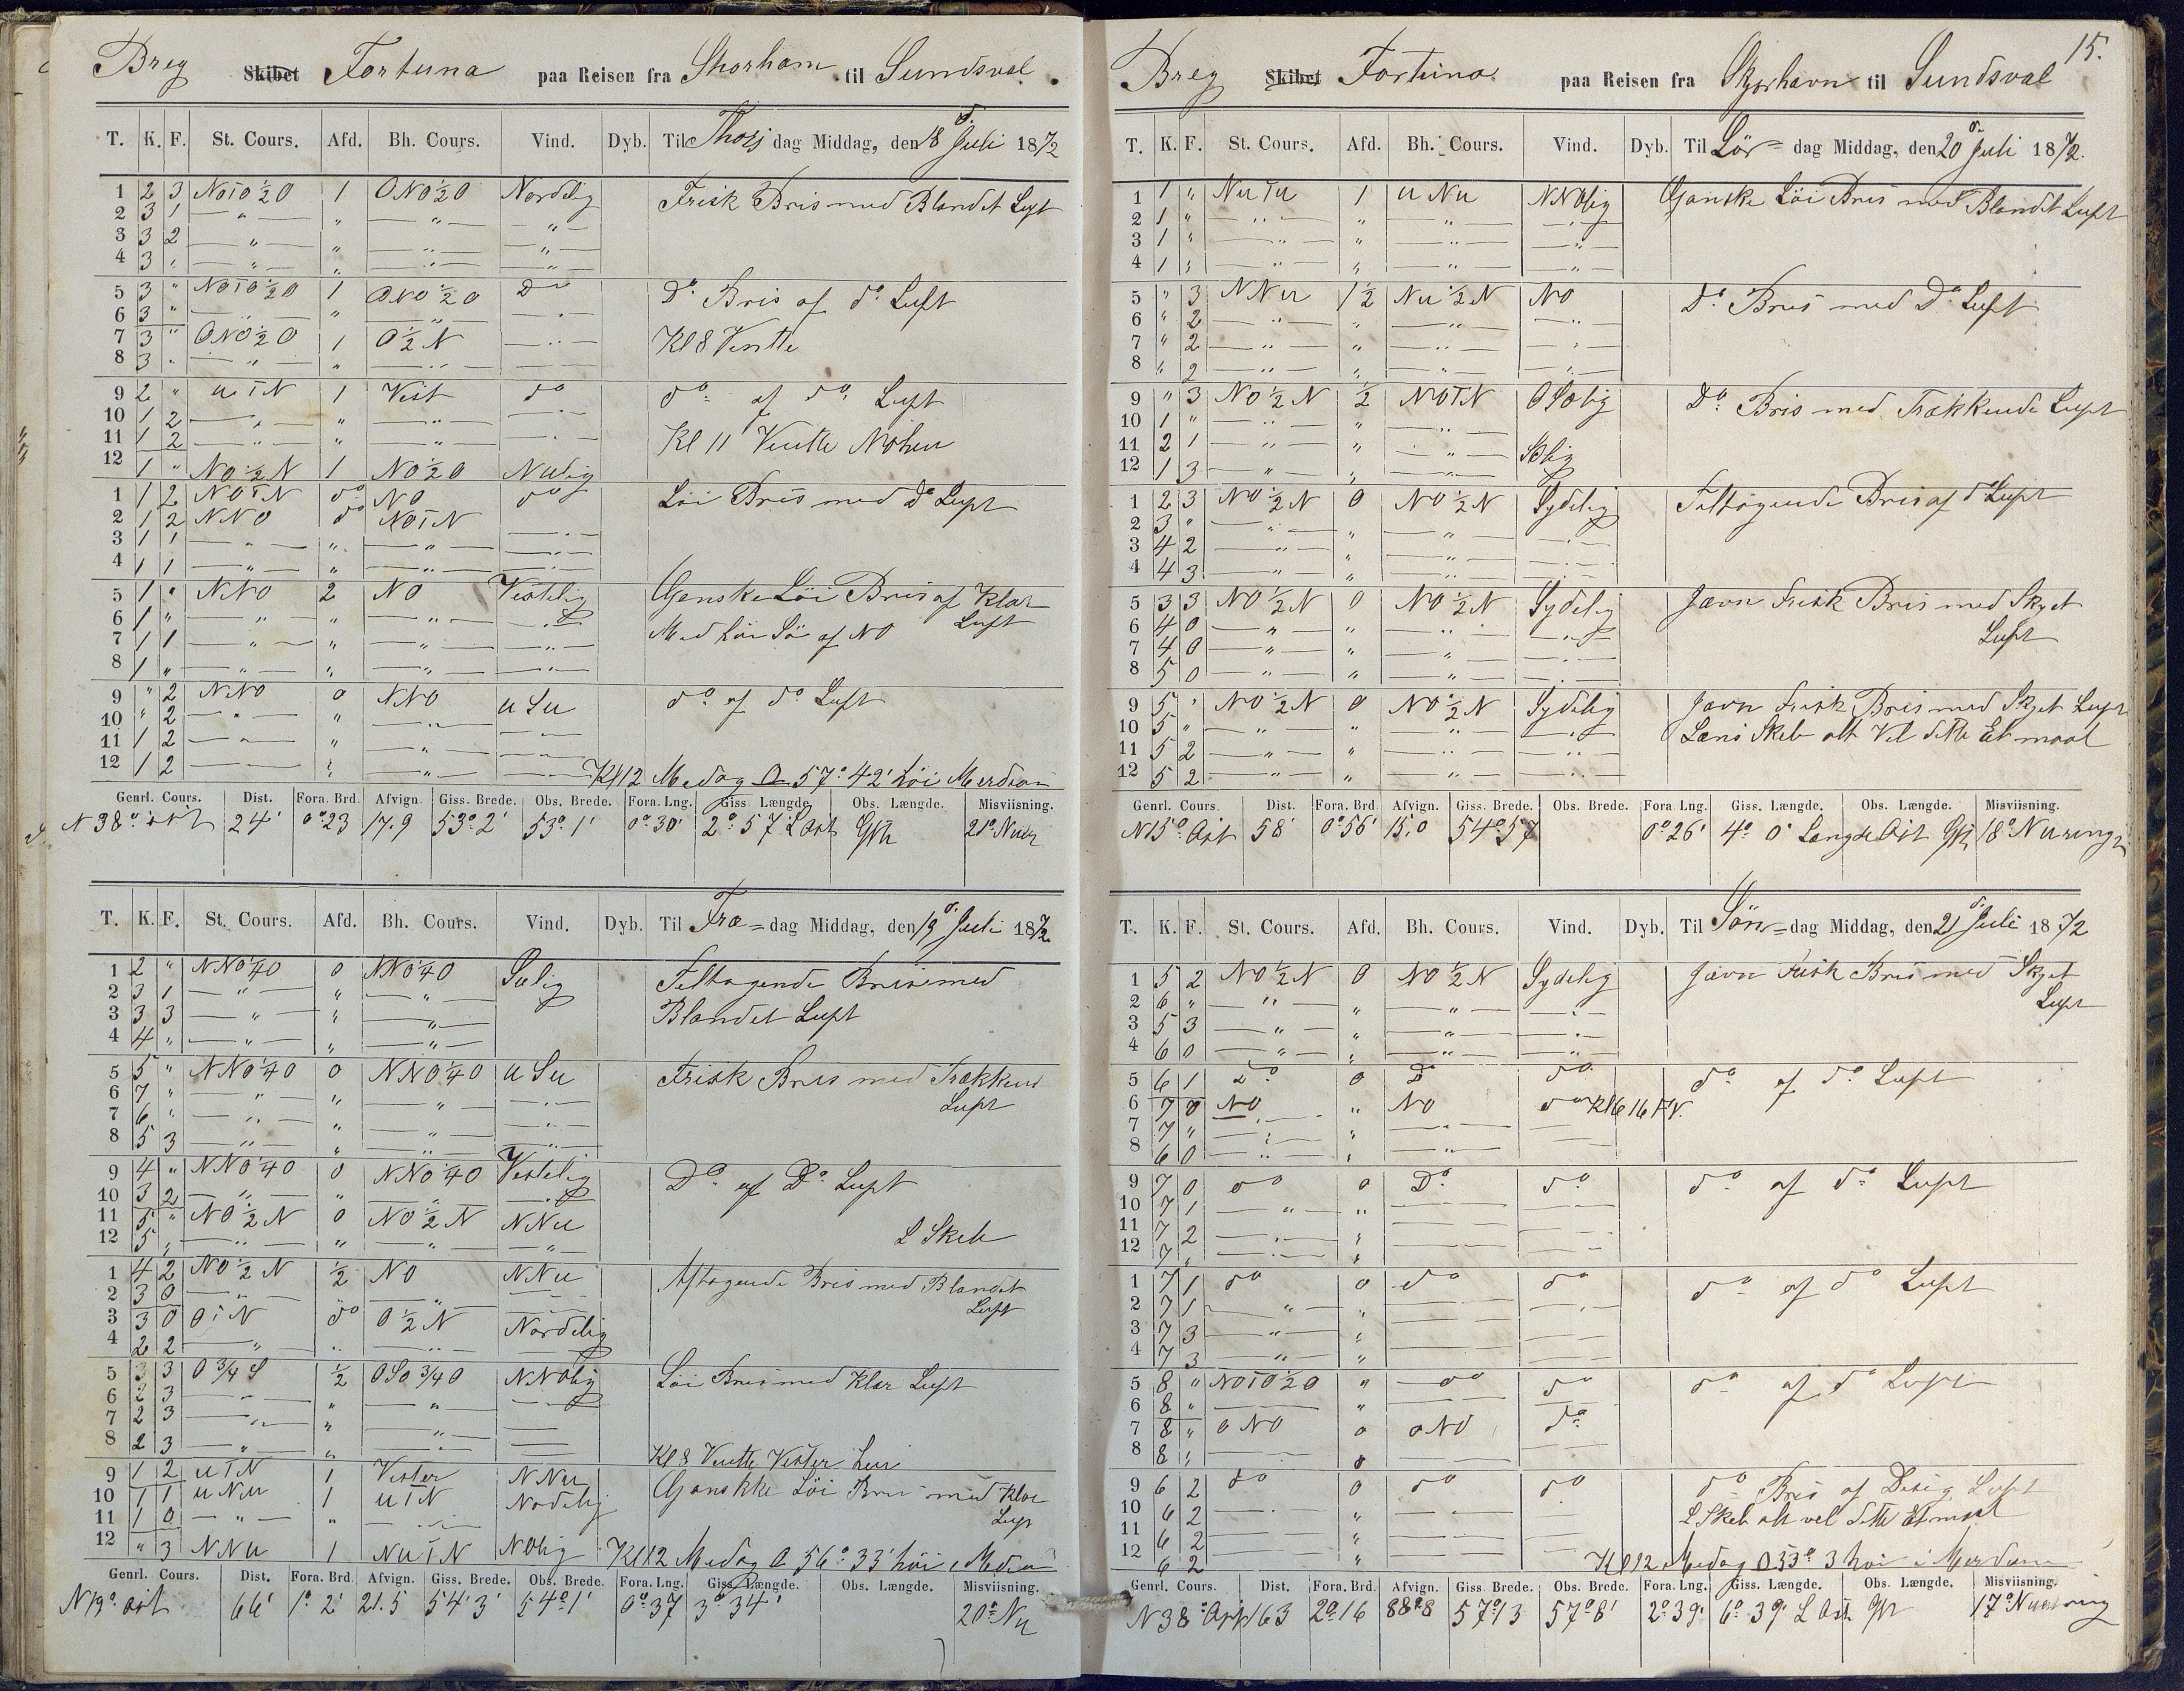 Breg Skibet Fortuna paa Reisen fra Shorham til Sundsval.
T. K. F. St. Cours. Afd. Bh. Cours. Vind. Dyb. Til Thors dag Middag, den 18 d. Juli 1872
1 2 3 NOTO½O 1 ONO½O Nordlig Frisk Bris med Blandet Luft
2 3 1 — " — " — " — — " —
3 3 2 — " — " — " — — " —
4 3 " — " — " — " — — " —
5 3 " NOTO½O 1 ONO½O Do Do Bris af do Luft
6 3 " — " — " — " — — " —
7 3 " ONO½O 1 O½N — " — Kl 8 Ventte
8 3 " — " — " — " — — " —
9 2 " uTN 1 Vest do do af do Luft
10 1 2 — " — " — " — — " —
11 1 2 — " — " — " — — " — Kl 11 Ventte
12 1 " NO½N 1 NO½O Nulig
1 1 2 NOTN do NO do Löi Bris med Do Luft
2 1 2 NNO do NOTN
3 1 1 — " — " — " — — " —
4 1 1 — " — " — " — — " —
5 1 " NNO 2 NO Vestelig Ganske Löi Bris af Klar
6 1 " — " — " — " — — " — Luft
7 1 1 — " — " — " — — " — Med høi Sö af NO
8 1 " — " — " — " — — " —
9 " 2 NNO 0 NNO uSu do af do Luft
10 " 2 — " — " — " — — " —
11 1 2 — " — " — " — — " —
12 1 2 — " — " — " — — " — Kl 12 Medag 57° 42' höi Merdian
Genrl. Cours. Dist. Fora. Brd. Afvign. Giss. Brede. Obs. Brede. Fora. Lng. Giss. Længde. Obs. Længde. Misviisning.
N 38° ost 24' 0° 23 17.9 53° 2' 53° 1' 0° 30' 2° 57 L Ost 21°
T. K. F. St. Cours. Afd. Bh. Cours. Vind. Dyb. Til Fre=dag Middag, den 19 d. Juli 1872
1 2 " NNO¼O 0 NNO¼O Sulig Feltagende Bris med
2 3 1 — " — " — " —
3 3 3 — " — " — " — Blandet Luft
4 4 " — " — " — " —
5 5 " NNO¼O 0 NNO¼O uSu Frisk Bris med Trækkend
6 7 " — " — " — " — — " — Luft
7 6 " — " — " — " — — " —
8 5 3 — " — " — " — — " —
9 4 " NNO¼O 0 NNO¼O Vestelig Do af Do Luft
10 3 2 — " — " — " — — " —
11 5 " NO½N 0 NO½N NNu
12 5 " — " — " — " — — " — L Skeb
1 4 2 NO½N ½ NO NNu Aftagende Bris med Blandet
2 3 0 — " — — " — — " — Luft
3 3 0 OTN do O½N Nordelig
4 2 2 — " — " — " — — " —
5 3 3 O¾S ½ OSO¾O NNOlig Löi Bris med Klar Luft
6 2 3 — " — " — " — — " —
7 2 3 — " — " — " — —
8 2 3 — " — " — " — — Kl 8 Ventte Vester
9 1 2 uTN 1 Vester NNu Ganskke Löi Bris med Klar
10 1 1 uNu 1 uTN Nodelig Luft
11 1 0 — " — " — " —
12 " 3 NNu 1 NuTN NOlig Kl 12 Medag 56° 33' höi Median
Genrl. Cours. Dist. Fora. Brd. Afvign. Giss. Brede. Obs. Brede. Fora. Lng. Giss. Længde. Obs. Længde. Misviisning.
N 19° ost 66' 1° 2' 21.5 54° 3' 54° 1' 0° 37 3° 34' 20° Nu
15.
Breg Skibet Fortuna paa Reisen fra Skorhavn til Sundsval
T. K. F. St. Cours. Afd. Bh. Cours. Vind. Dyb. Til Lör= dag Middag, den 20 d. Juli 1872.
1 1 " NuTu 1 uNu NNOlig Ganske Löi Bris med Blandet Luft
2 1 " — " — " — " — — " —
3 1 " — " — " — " — — " —
4 1 " — " — " — " — — " —
5 " 3 NNu 1½ Nu½N NO Do Bris med Do Luft
6 " 2 — " — " — " — — " —
7 " 2 — " — " — " — — " —
8 " 2 — " — " — " — — " —
9 " 3 NO½N ½ NOTN OSOlig Do Bris med Trækkende Luft
10 1 " — " — " — " —
11 2 1 — " — " — " — SOlig
12 1 3 — " — " — " —
1 2 3 NO½N 0 NO½N Sydelig Feltagende Bris af do Luft
2 3 " — " — " — " — — " —
3 4 2 — " — " — " — — " —
4 4 3 — " — " — " — — " —
5 3 3 NO½N 0 NO½N Sydelig Jævn Frisk Bris med Skyet
6 4 0 — " — " — " — — " — Luft
7 4 0 — " — " — " — — " —
8 5 0 — " — " — " — — " —
9 5 " NO½N 0 NO½N Sydelig Jævn Frisk Bris med Skyet Luft
10 5 " — " — " — " — — " — Læns Skeb alt Vel dette Etmaal
11 5 2 — " — " — " — — " —
12 5 2 — " — " — " — — " —
Genrl. Cours. Dist. Fora. Brd. Afvign. Giss. Brede. Obs. Brede. Fora. Lng. Giss. Længde. Obs. Længde. Misviisning.
N 15° Ost 58' 0° 56' 15,0 54° 57 0° 26' 4° 0' Længde Ost 18°
T. K. F. St. Cours. Afd. Bh. Cours. Vind. Dyb. Til Sön=dag Middag, den 21 d. Juli 1872
1 5 2 NO½N 0 NO½N Sydelig Jævn Frisk Bris med Skyet
2 6 " — " — " — " — — " — Luft
3 5 3 — " — " — " — — " —
4 6 0 — " — " — " — — " —
5 6 1 Do 0 D do do af do Luft
6 7 0 NO " NO do Kl 6
7 7 " — " — " — " — —
8 6 0 — " — " — " — —
9 7 0 do 0 Do do do af do Luft
10 7 1 — " — " — —
11 7 2 — " — " — —
12 7 " — " — " — —
1 7 1 do 0 do do do af do Luft
2 7 1 — " — " — —
3 7 3 — " — " — —
4 7 3 — " — " — —
5 8 " NOTO½O " do do do af do Luft
6 8 " — " — —
7 8 " ONO 0 ONO do
8 8 " — 0 — —
9 6 2 do 0 do do do Bris af Disig Luft
10 6 2 — " — — L Skeb alt vel dette Etmaal
11 6 2 — " — —
12 6 2 — " — — Kl 12 Medag 53° 3 höi i Merdian
Genrl. Cours. Dist. Fora. Brd. Afvign. Giss. Brede. Obs. Brede. Fora. Lng. Giss. Længde. Obs. Længde. Misviisning.
N 38° Ost 163 2° 16 88°8 57° 13 57° 8' 2° 39' 6° 39' L Ost 17°